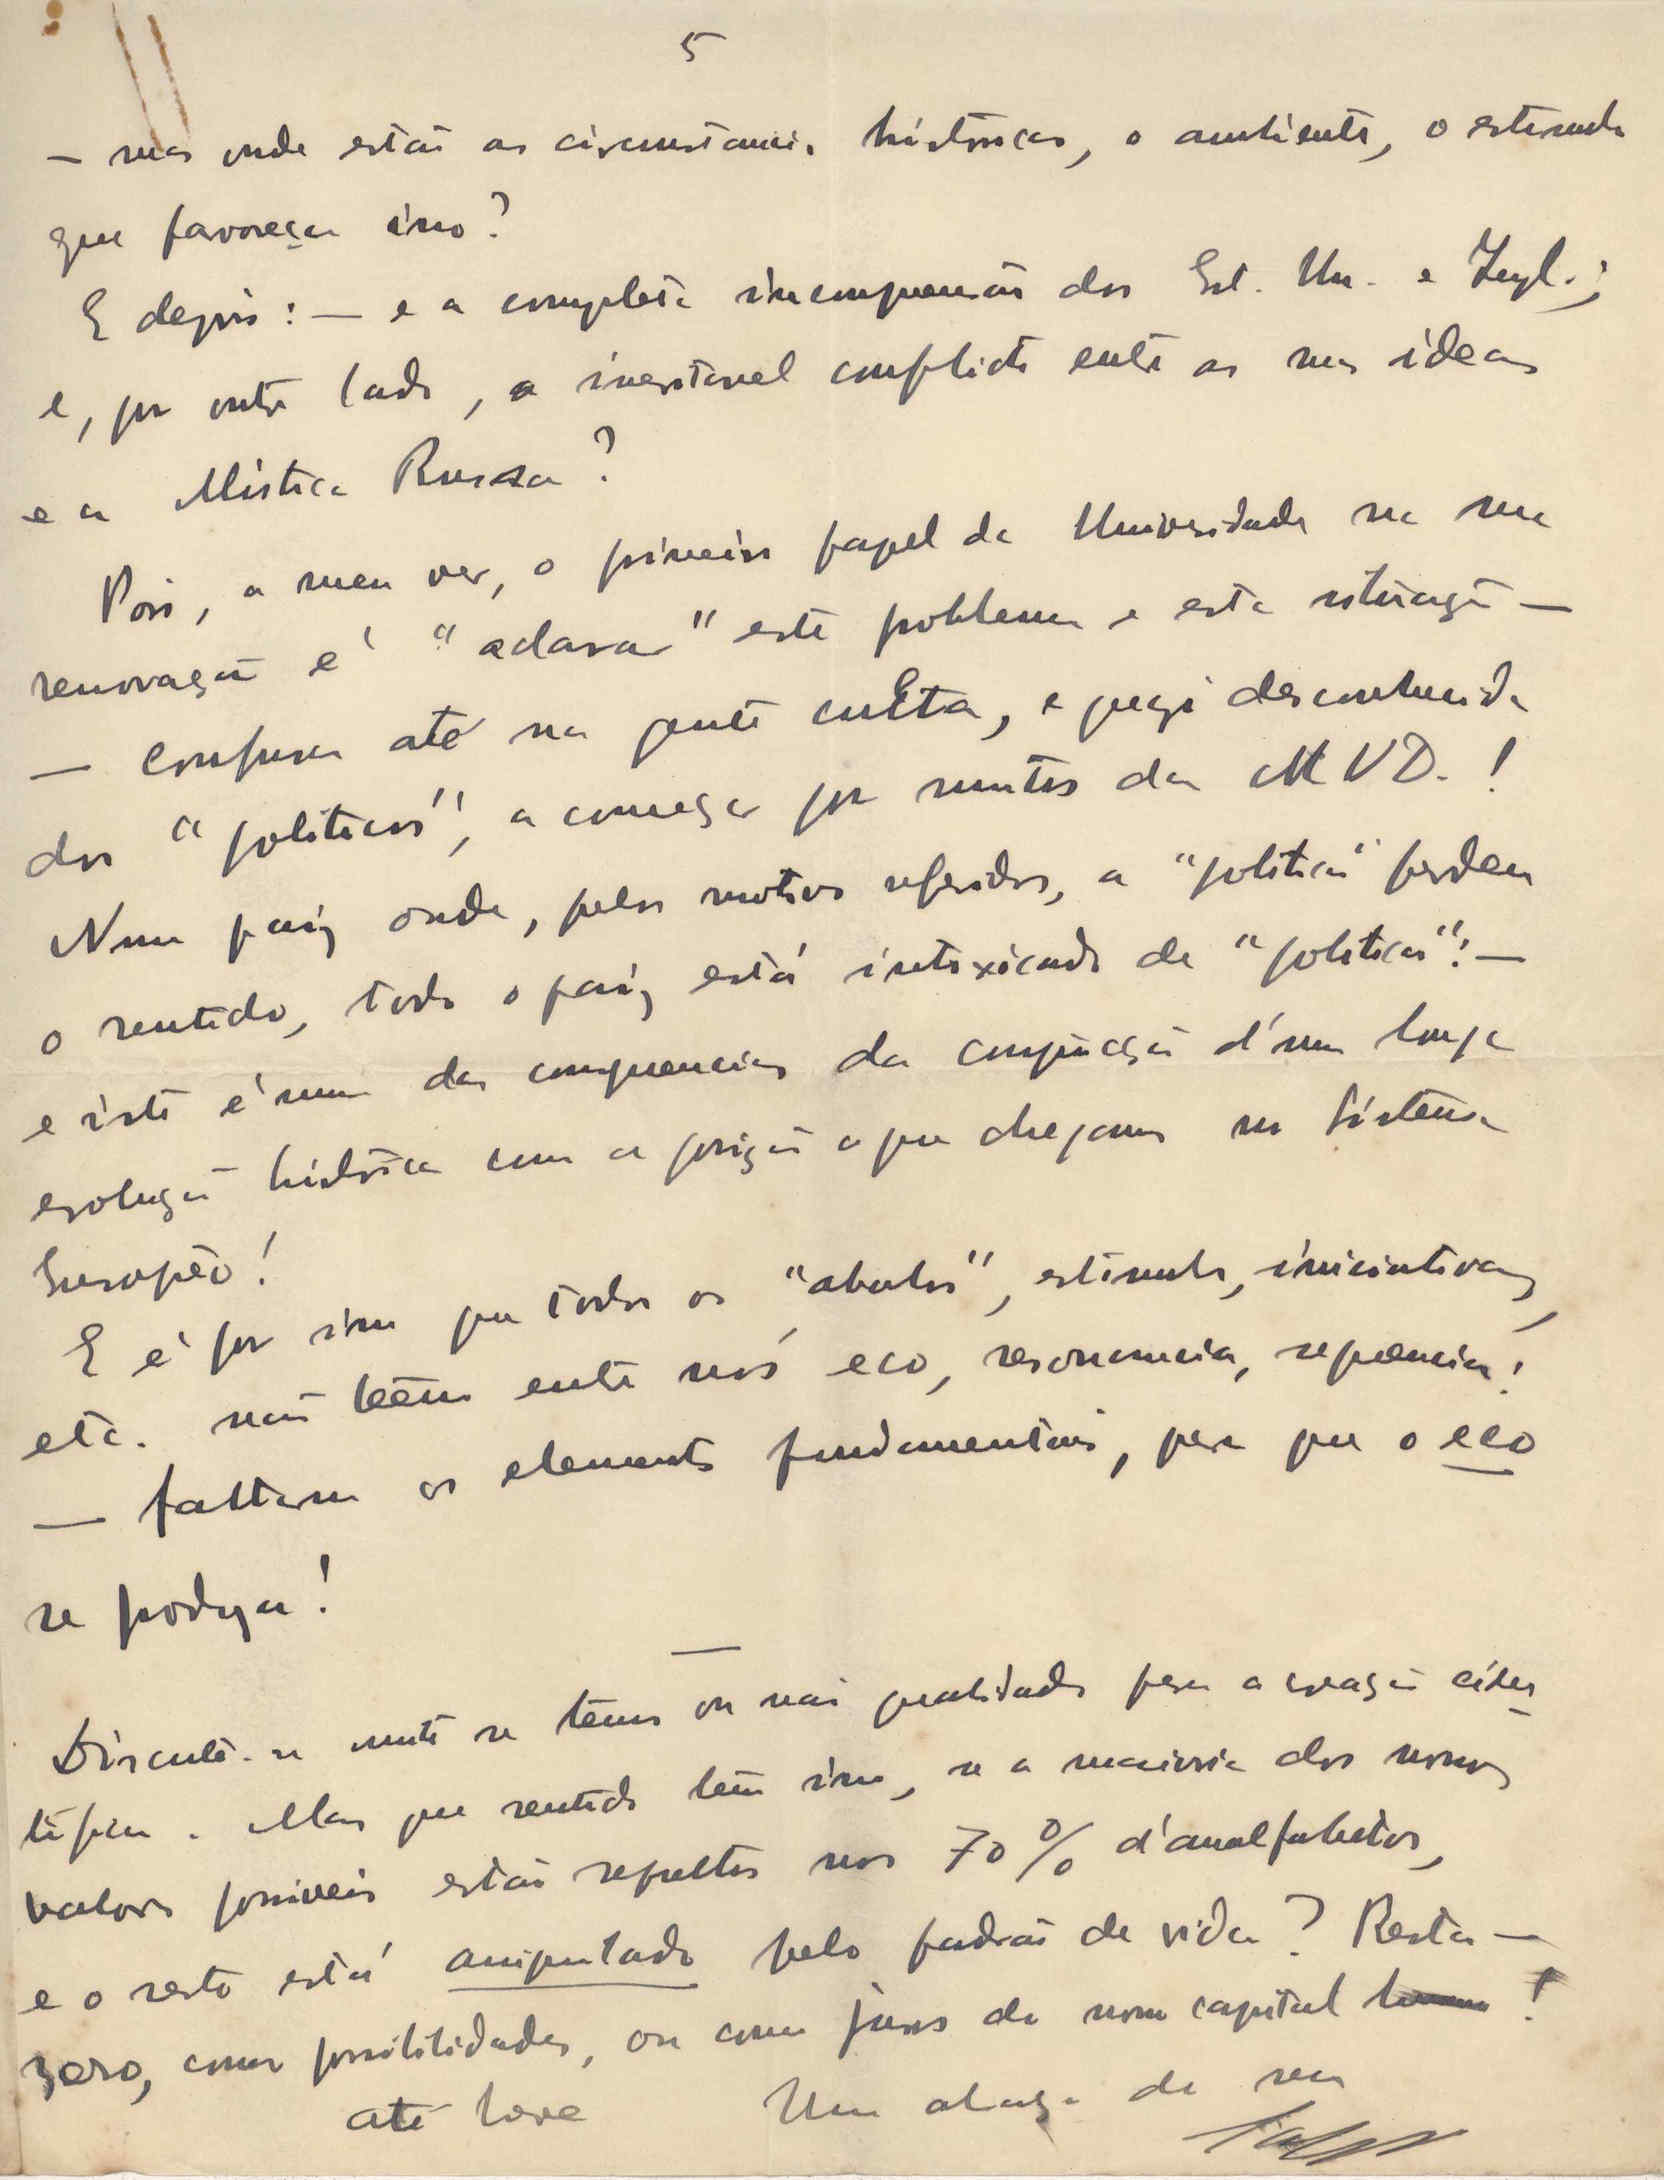 5
— mas onde estão as circunstancias históricas, o ambiente, o estimulo
que favoreça isso?
E depois: — e a completa incompreensão dos Est. Un. e Ingl.;
e, por outro lado, o inevitavel conflicto entre as suas ideas
e a Mistica Russa?
Pois, a meu ver, o primeiro papel da Universidade na sua
renovação é "aclarar" este problema e esta situação —
— confusa até na gente culta, e quasi desconhecida
dos "politicos", a começar por muitos da MVD.!
Num paiz onde, pelos motivos referidos, a "politica" perdeu
o sentido, todo o paiz está intoxicado de "politica": —
e isto é uma das consequencias da conjugação d'uma longa
evolução histórica com a posição a que chegamos no Sistema
Europêo!
E é por isso que todos os "abalos", estimulos, iniciativas,
etc. não teêm entre nós eco, resonancia, sequencia!
— faltam os elementos fundamentais, para que o eco
se produza!
—
Discute-se muito se temos ou não qualidades para a creação cien-
tífica. Mas que sentido tem isso, se a maioria dos nossos
valores possiveis estão sepultos nos 70% d'analfabetos,
e o resto está amputado pelo padrão de vida? Resta —
zero, como possibilidades, ou como juros do nosso capital !
até breve Um abraço do seu